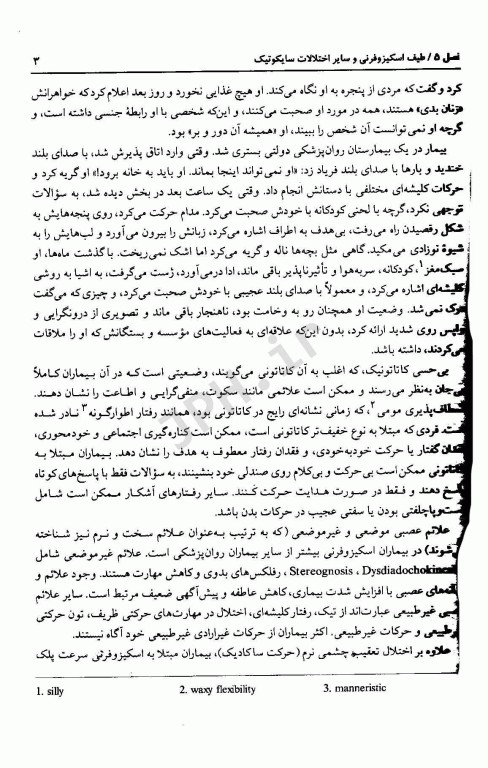 فصل ۵ / طیف اسکیزوفرنی و سایر اختلالات سایکوتیک ۳
کرد و گفت که مردی از پنجره به او نگاه می‌کند. او هیچ غذایی نخورد و روز بعد اعلام کرد که خواهرانش
«زنان بدی» هستند، همه در مورد او صحبت می‌کنند، و این‌که شخصی با او رابطهٔ جنسی داشته است، و
گرچه او نمی‌توانست آن شخص را ببیند، او «همیشه آن دور و بر» بود.
بیمار در یک بیمارستان روان‌پزشکی دولتی بستری شد. وقتی وارد اتاق پذیرش شد، با صدای بلند
خندید و بارها با صدای بلند فریاد زد: «او نمی‌تواند اینجا بماند. او باید به خانه برود!» او گریه کرد و
حرکات کلیشه‌ای مختلفی با دستانش انجام داد. وقتی یک ساعت بعد در بخش دیده شد، به سؤالات
توجهی نکرد، گرچه با لحنی کودکانه با خودش صحبت می‌کرد. مدام حرکت می‌کرد، روی پنجه‌هایش به
شکل رقصیدن راه می‌رفت، بی‌هدف به اطراف اشاره می‌کرد، زبانش را بیرون می‌آورد و لب‌هایش را به
شیوهٔ نوزادی می‌مکید. گاهی مثل بچه‌ها ناله و گریه می‌کرد اما اشک نمی‌ریخت. با گذشت ماه‌ها، او
سبک‌مغز۱، کودکانه، سربه‌هوا و تأثیرناپذیر باقی ماند، ادا درمی‌آورد، ژست می‌گرفت، به اشیا به روشی
کلیشه‌ای اشاره می‌کرد، و معمولاً با صدای بلند عجیبی با خودش صحبت می‌کرد، و چیزی که می‌گفت
درک نمی‌شد. وضعیت او همچنان رو به وخامت بود، ناهنجار باقی ماند و تصویری از درونگرایی و
روی شدید ارائه کرد، بدون این‌که علاقه‌ای به فعالیت‌های مؤسسه و بستگانش که او را ملاقات
می‌کردند، داشته باشد.
بی‌حسی کاتاتونیک، که اغلب به آن کاتاتونی می‌گویند، وضعیتی است که در آن بیماران کاملاً
بی‌جان به‌نظر می‌رسند و ممکن است علائمی مانند سکوت، منفی‌گرایی و اطاعت را نشان دهند.
انعطاف‌پذیری مومی۲، که زمانی نشانه‌ای رایج در کاتاتونی بود، همانند رفتار اطوارگونه۳ نادر شده
است. فردی که مبتلا به نوع خفیف‌تر کاتاتونی است، ممکن است کناره‌گیری اجتماعی و خودمحوری،
فقدان گفتار یا حرکت خودبه‌خودی، و فقدان رفتار معطوف به هدف را نشان دهد. بیماران مبتلا به
کاتاتونی ممکن است بی‌حرکت و بی‌کلام روی صندلی خود بنشینند، به سؤالات فقط با پاسخ‌های کوتاه
پاسخ دهند و فقط در صورت هدایت حرکت کنند. سایر رفتارهای آشکار ممکن است شامل
دست‌وپاچلفتی بودن یا سفتی عجیب در حرکات بدن باشد.
علائم عصبی موضعی و غیرموضعی (که به ترتیب به‌عنوان علائم سخت و نرم نیز شناخته
می‌شوند) در بیماران اسکیزوفرنی بیشتر از سایر بیماران روان‌پزشکی است. علائم غیرموضعی شامل
Stereognosis ، Dysdiadochokinesia، رفلکس‌های بدوی و کاهش مهارت هستند. وجود علائم و
نشانه‌های عصبی با افزایش شدت بیماری، کاهش عاطفه و پیش‌آگهی ضعیف مرتبط است. سایر علائم
عصبی غیرطبیعی عبارت‌اند از تیک، رفتار کلیشه‌ای، اختلال در مهارت‌های حرکتی ظریف، تون حرکتی
غیرطبیعی و حرکات غیرطبیعی. اکثر بیماران از حرکات غیرارادی غیرطبیعی خود آگاه نیستند.
علاوه بر اختلال تعقیب چشمی نرم (حرکت ساکادیک)، بیماران مبتلا به اسکیزوفرنی سرعت پلک
1. silly 2. waxy flexibility 3. manneristic